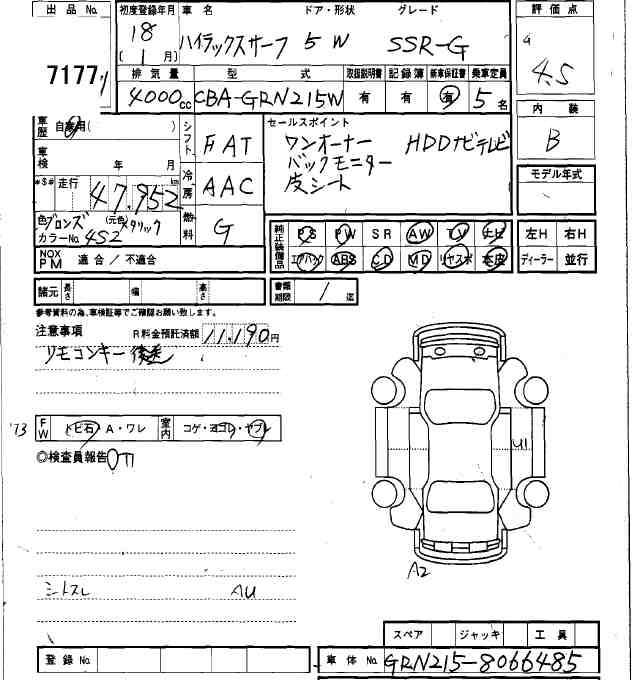 出品No. 初度登録年月 車名 ドア・形状 グレード 評価点
7177 18 (1月) ハイラックスサーフ 5W SSR-G 4.5
排気量 型式 取扱説明書 記録簿 新車保証書 乗車定員
4000cc CBA-GRN215W 有 有 有 5名 内装
車歴 自家用( ) シフト FAT セールスポイント B
ワンオーナー HDDナビテレビ
車検 年 月 バックモニター
冷房 AAC 皮シート モデル年式
*$# 走行 47,952 km
色 ブロンズ (元色) メタリック 燃料 G
カラーNo. 4S2
純正装備品 PS PW SR AW TV ナビ 左H 右H
エアバック ABS CD MD リヤスポ 本皮 ディーラー 並行
NOX PM 適合 / 不適合
諸元 長さ 幅 高さ 書類期限 / 迄
参考資料の為、車検証等でご確認お願い致します。
注意事項 R料金預託済額 11,190円
リモコンキー後送
'73 FW トビ石・A・ワレ 室内 コゲ・ヨゴレ・ヤブレ
U1
◎検査員報告
A2
シトスレ AU
スペア ジャッキ 工具
登録No. 車体No. GRN215-8066485